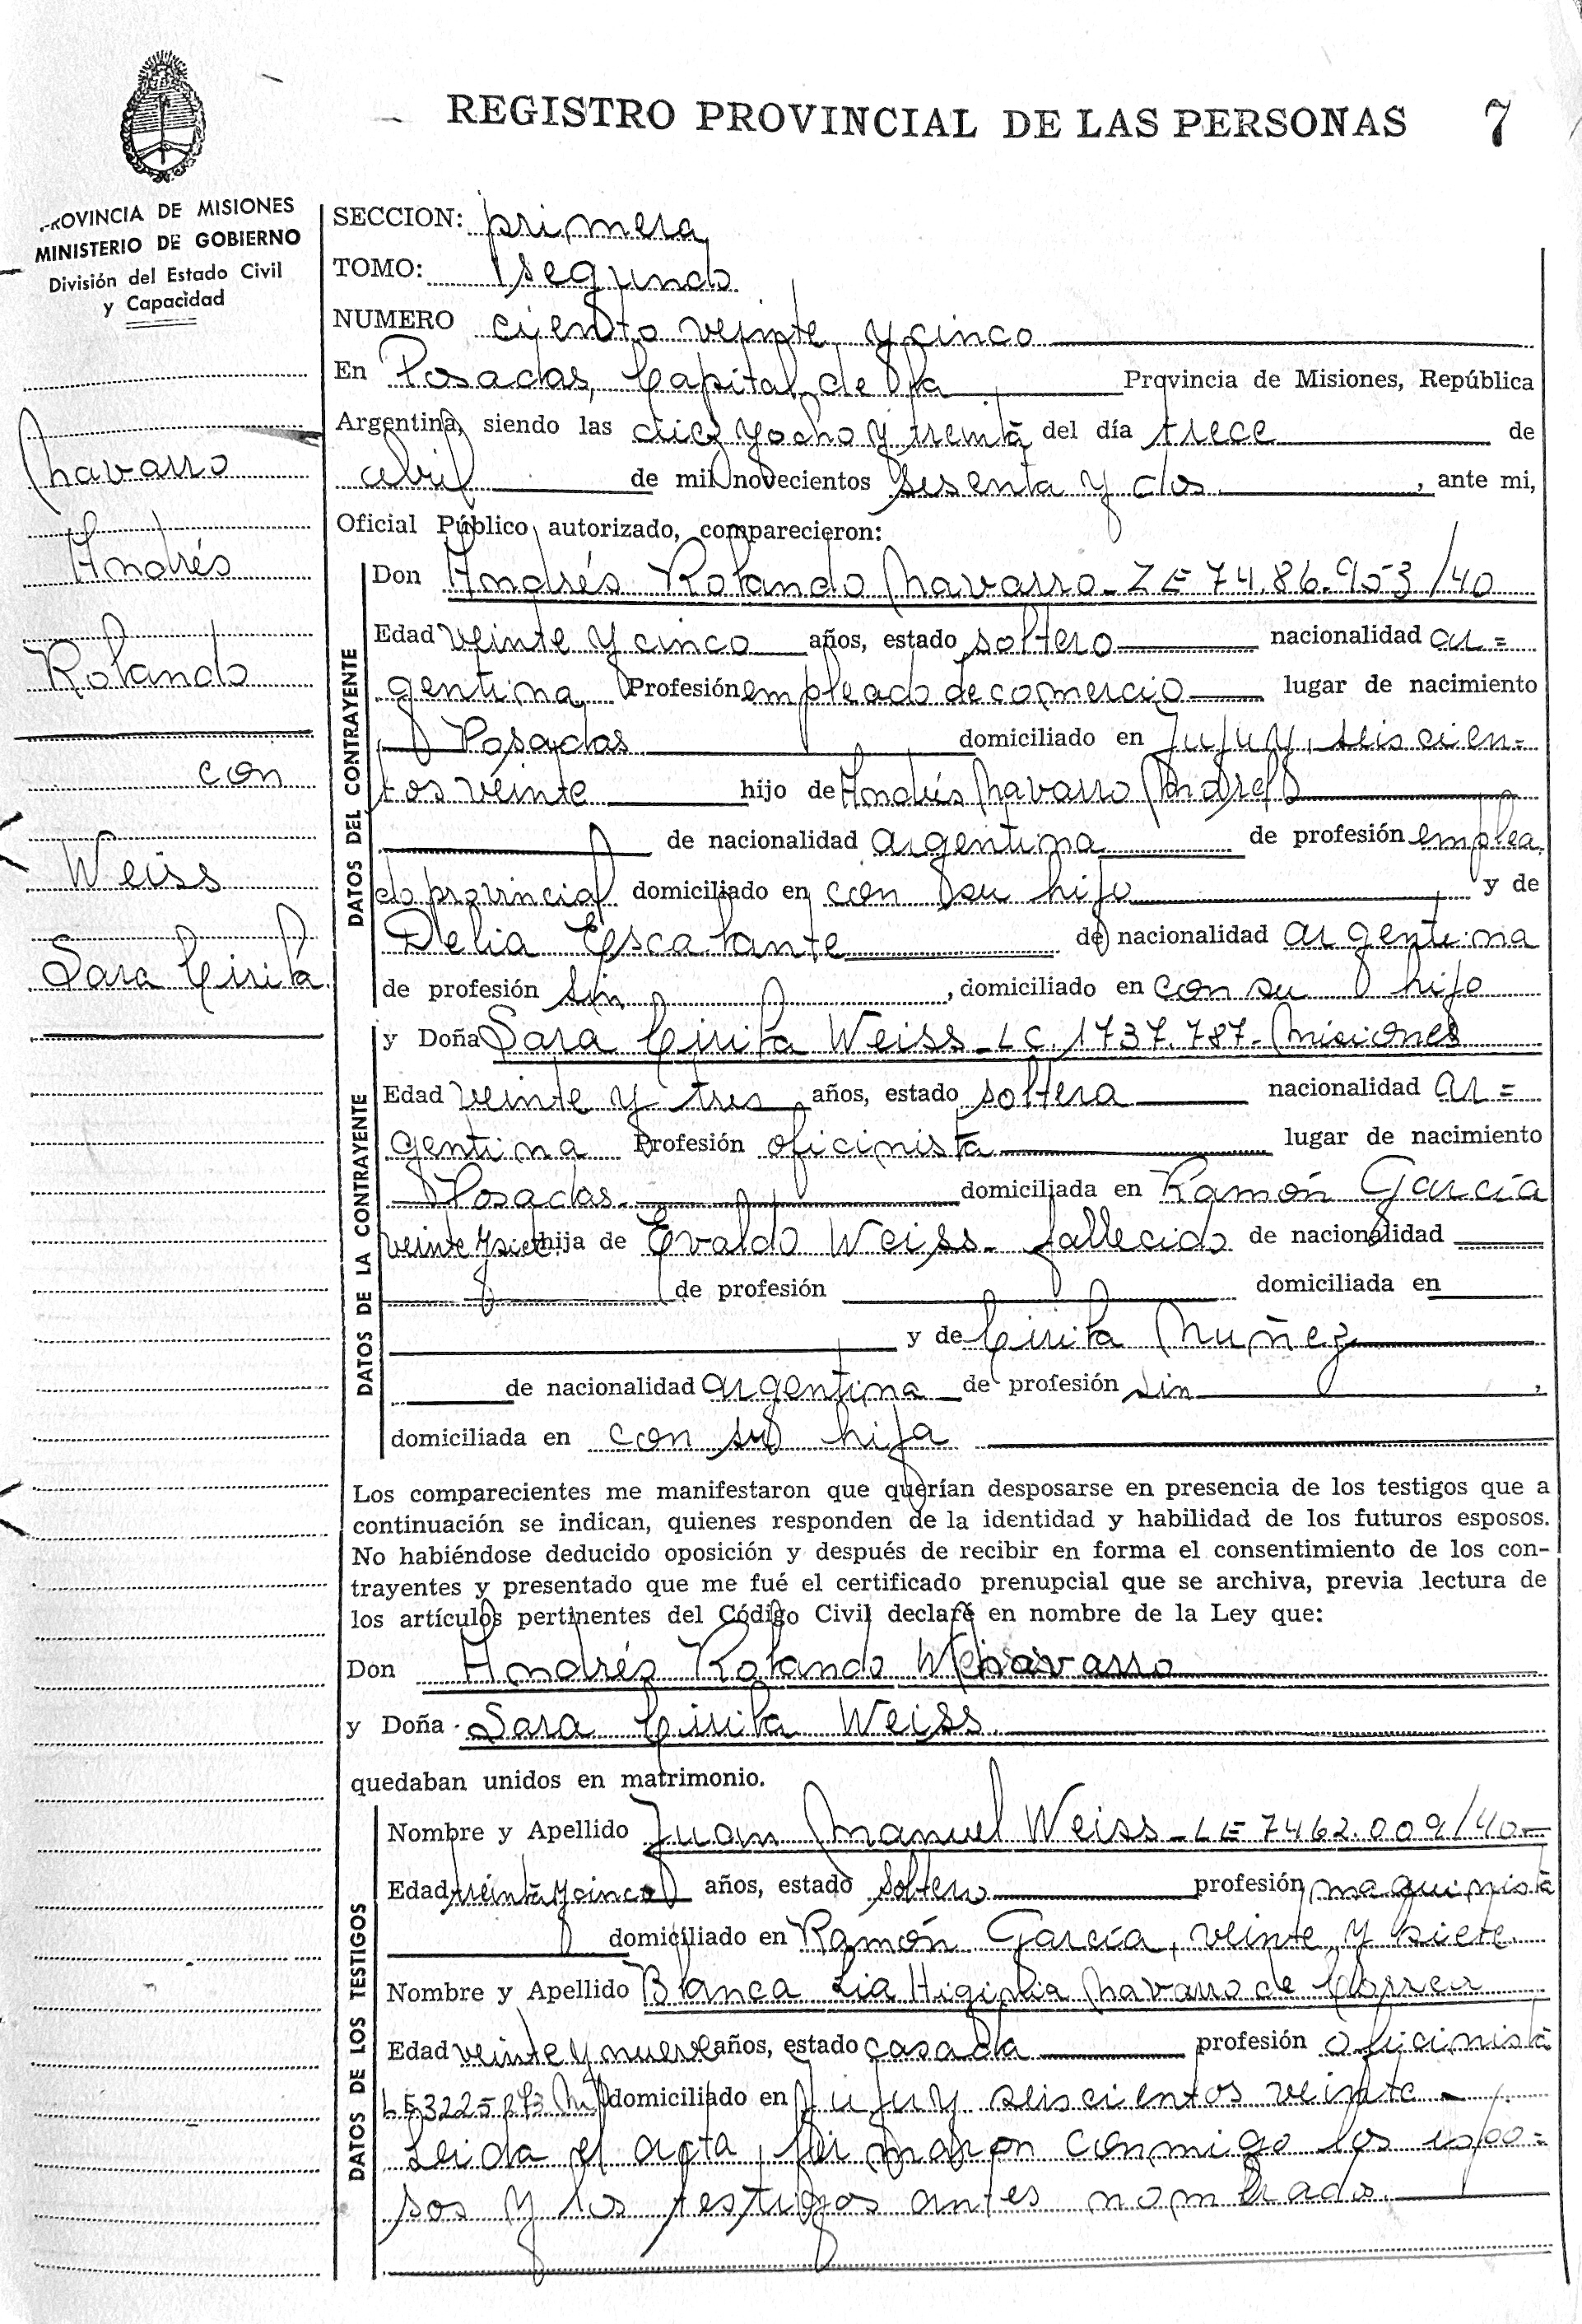 REGISTRO PROVINCIAL DE LAS PERSONAS 7
PROVINCIA DE MISIONES
MINISTERIO DE GOBIERNO
División del Estado Civil
y Capacidad
Navarro
Andrés
Rolando
con
Weiss
Sara Cirila
SECCION: primera
TOMO: segundo
NUMERO ciento veinte y cinco
En Posadas, Capital de la Provincia de Misiones, República
Argentina, siendo las diez y ocho y treinta del día trece de
abril de mil novecientos sesenta y dos, ante mi,
Oficial Público autorizado, comparecieron:
DATOS DEL CONTRAYENTE
Don Andrés Rolando Navarro - LE 74.86.953/40
Edad veinte y cinco años, estado soltero nacionalidad ar=
gentina Profesión empleado de comercio lugar de nacimiento
Posadas domiciliado en Jujuy, seiscien-
tos veinte hijo de Andrés Navarro
de nacionalidad argentina de profesión emplea
do provincial domiciliado en con su hijo y de
Delia Escalante de nacionalidad argentina
de profesión sin, domiciliado en con su hijo
DATOS DE LA CONTRAYENTE
y Doña Sara Cirila Weiss - LC. 1737.787 - Misiones
Edad veinte y tres años, estado soltera nacionalidad ar=
gentina Profesión oficinista lugar de nacimiento
Posadas domiciliada en Ramón García
veinte y siete hija de Evaldo Weiss - fallecido de nacionalidad
de profesión domiciliada en
y de Cirila Nuñez
de nacionalidad argentina de profesión sin,
domiciliada en con su hija
Los comparecientes me manifestaron que querían desposarse en presencia de los testigos que a
continuación se indican, quienes responden de la identidad y habilidad de los futuros esposos.
No habiéndose deducido oposición y después de recibir en forma el consentimiento de los con-
trayentes y presentado que me fué el certificado prenupcial que se archiva, previa lectura de
los artículos pertinentes del Código Civil declaré en nombre de la Ley que:
Don Andrés Rolando Navarro
y Doña Sara Cirila Weiss
quedaban unidos en matrimonio.
DATOS DE LOS TESTIGOS
Nombre y Apellido Juan Manuel Weiss - LE 7462.009/40 -
Edad treinta y cinco años, estado soltero profesión maquinista
domiciliado en Ramón García, veinte y siete
Nombre y Apellido Blanca Lia Higinia Navarro de Correa
Edad veinte y nueve años, estado casada profesión oficinista
domiciliado en Jujuy seiscientos veinte -
Leida el acta, firmaron conmigo los espo=
sos y los testigos antes nombrados.